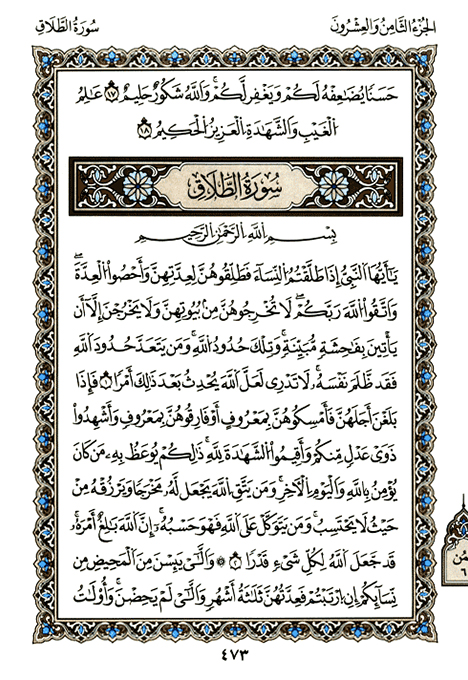 الجُزْءُ الثَّامِنُ وَالعِشْرُونَ
سُورَةُ الطَّلَاقِ
حَسَنًا يُضَٰعِفْهُ لَكُمْ وَيَغْفِر لَّكُمْ وَاللَّهُ شَكُورٌ حَلِيمٌ ١٧ عَٰلِمُ
الْغَيْبِ وَالشَّهَٰدَةِ الْعَزِيزُ الْحَكِيمُ ١٨
سُورَةُ الطَّلَاقِ
بِسْمِ اللَّهِ الرَّحْمَٰنِ الرَّحِيمِ
يَٰأَيُّهَا النَّبِيُّ إِذَا طَلَّقْتُمُ النِّسَآءَ فَطَلِّقُوهُنَّ لِعِدَّتِهِنَّ وَأَحْصُوا الْعِدَّةَ
وَاتَّقُوا اللَّهَ رَبَّكُمْ لَا تُخْرِجُوهُنَّ مِنْ بُيُوتِهِنَّ وَلَا يَخْرُجْنَ إِلَّا أَن
يَأْتِينَ بِفَٰحِشَةٍ مُّبَيِّنَةٍ وَتِلْكَ حُدُودُ اللَّهِ وَمَن يَتَعَدَّ حُدُودَ اللَّهِ
فَقَد ظَّلَمَ نَفْسَهُ لَا تَدْرِي لَعَلَّ اللَّهَ يُحْدِثُ بَعْدَ ذَٰلِكَ أَمْرًا ١ فَإِذَا
بَلَغْنَ أَجَلَهُنَّ فَأَمْسِكُوهُنَّ بِمَعْرُوفٍ أَوْ فَارِقُوهُنَّ بِمَعْرُوفٍ وَأَشْهِدُوا
ذَوَيْ عَدْلٍ مِّنكُمْ وَأَقِيمُوا الشَّهَٰدَةَ لِلَّهِ ذَٰلِكُمْ يُوعَظُ بِهِ مَن كَانَ
يُؤْمِنُ بِاللَّهِ وَالْيَوْمِ الْآخِرِ وَمَن يَتَّقِ اللَّهَ يَجْعَل لَّهُ مَخْرَجًا وَيَرْزُقْهُ مِنْ
حَيْثُ لَا يَحْتَسِبُ وَمَن يَتَوَكَّلْ عَلَى اللَّهِ فَهُوَ حَسْبُهُ إِنَّ اللَّهَ بَٰلِغٌ أَمْرَهُ
قَد جَّعَلَ اللَّهُ لِكُلِّ شَيْءٍ قَدْرًا ٢ وَالَّٰيْ يَئِسْنَ مِنَ الْمَحِيضِ مِن
نِّسَآئِكُمْ إِنِ ارْتَبْتُمْ فَعِدَّتُهُنَّ ثَلَٰثَةُ أَشْهُرٍ وَالَّٰيْ لَمْ يَحِضْنَ وَأُولَٰتُ
٤٧٣